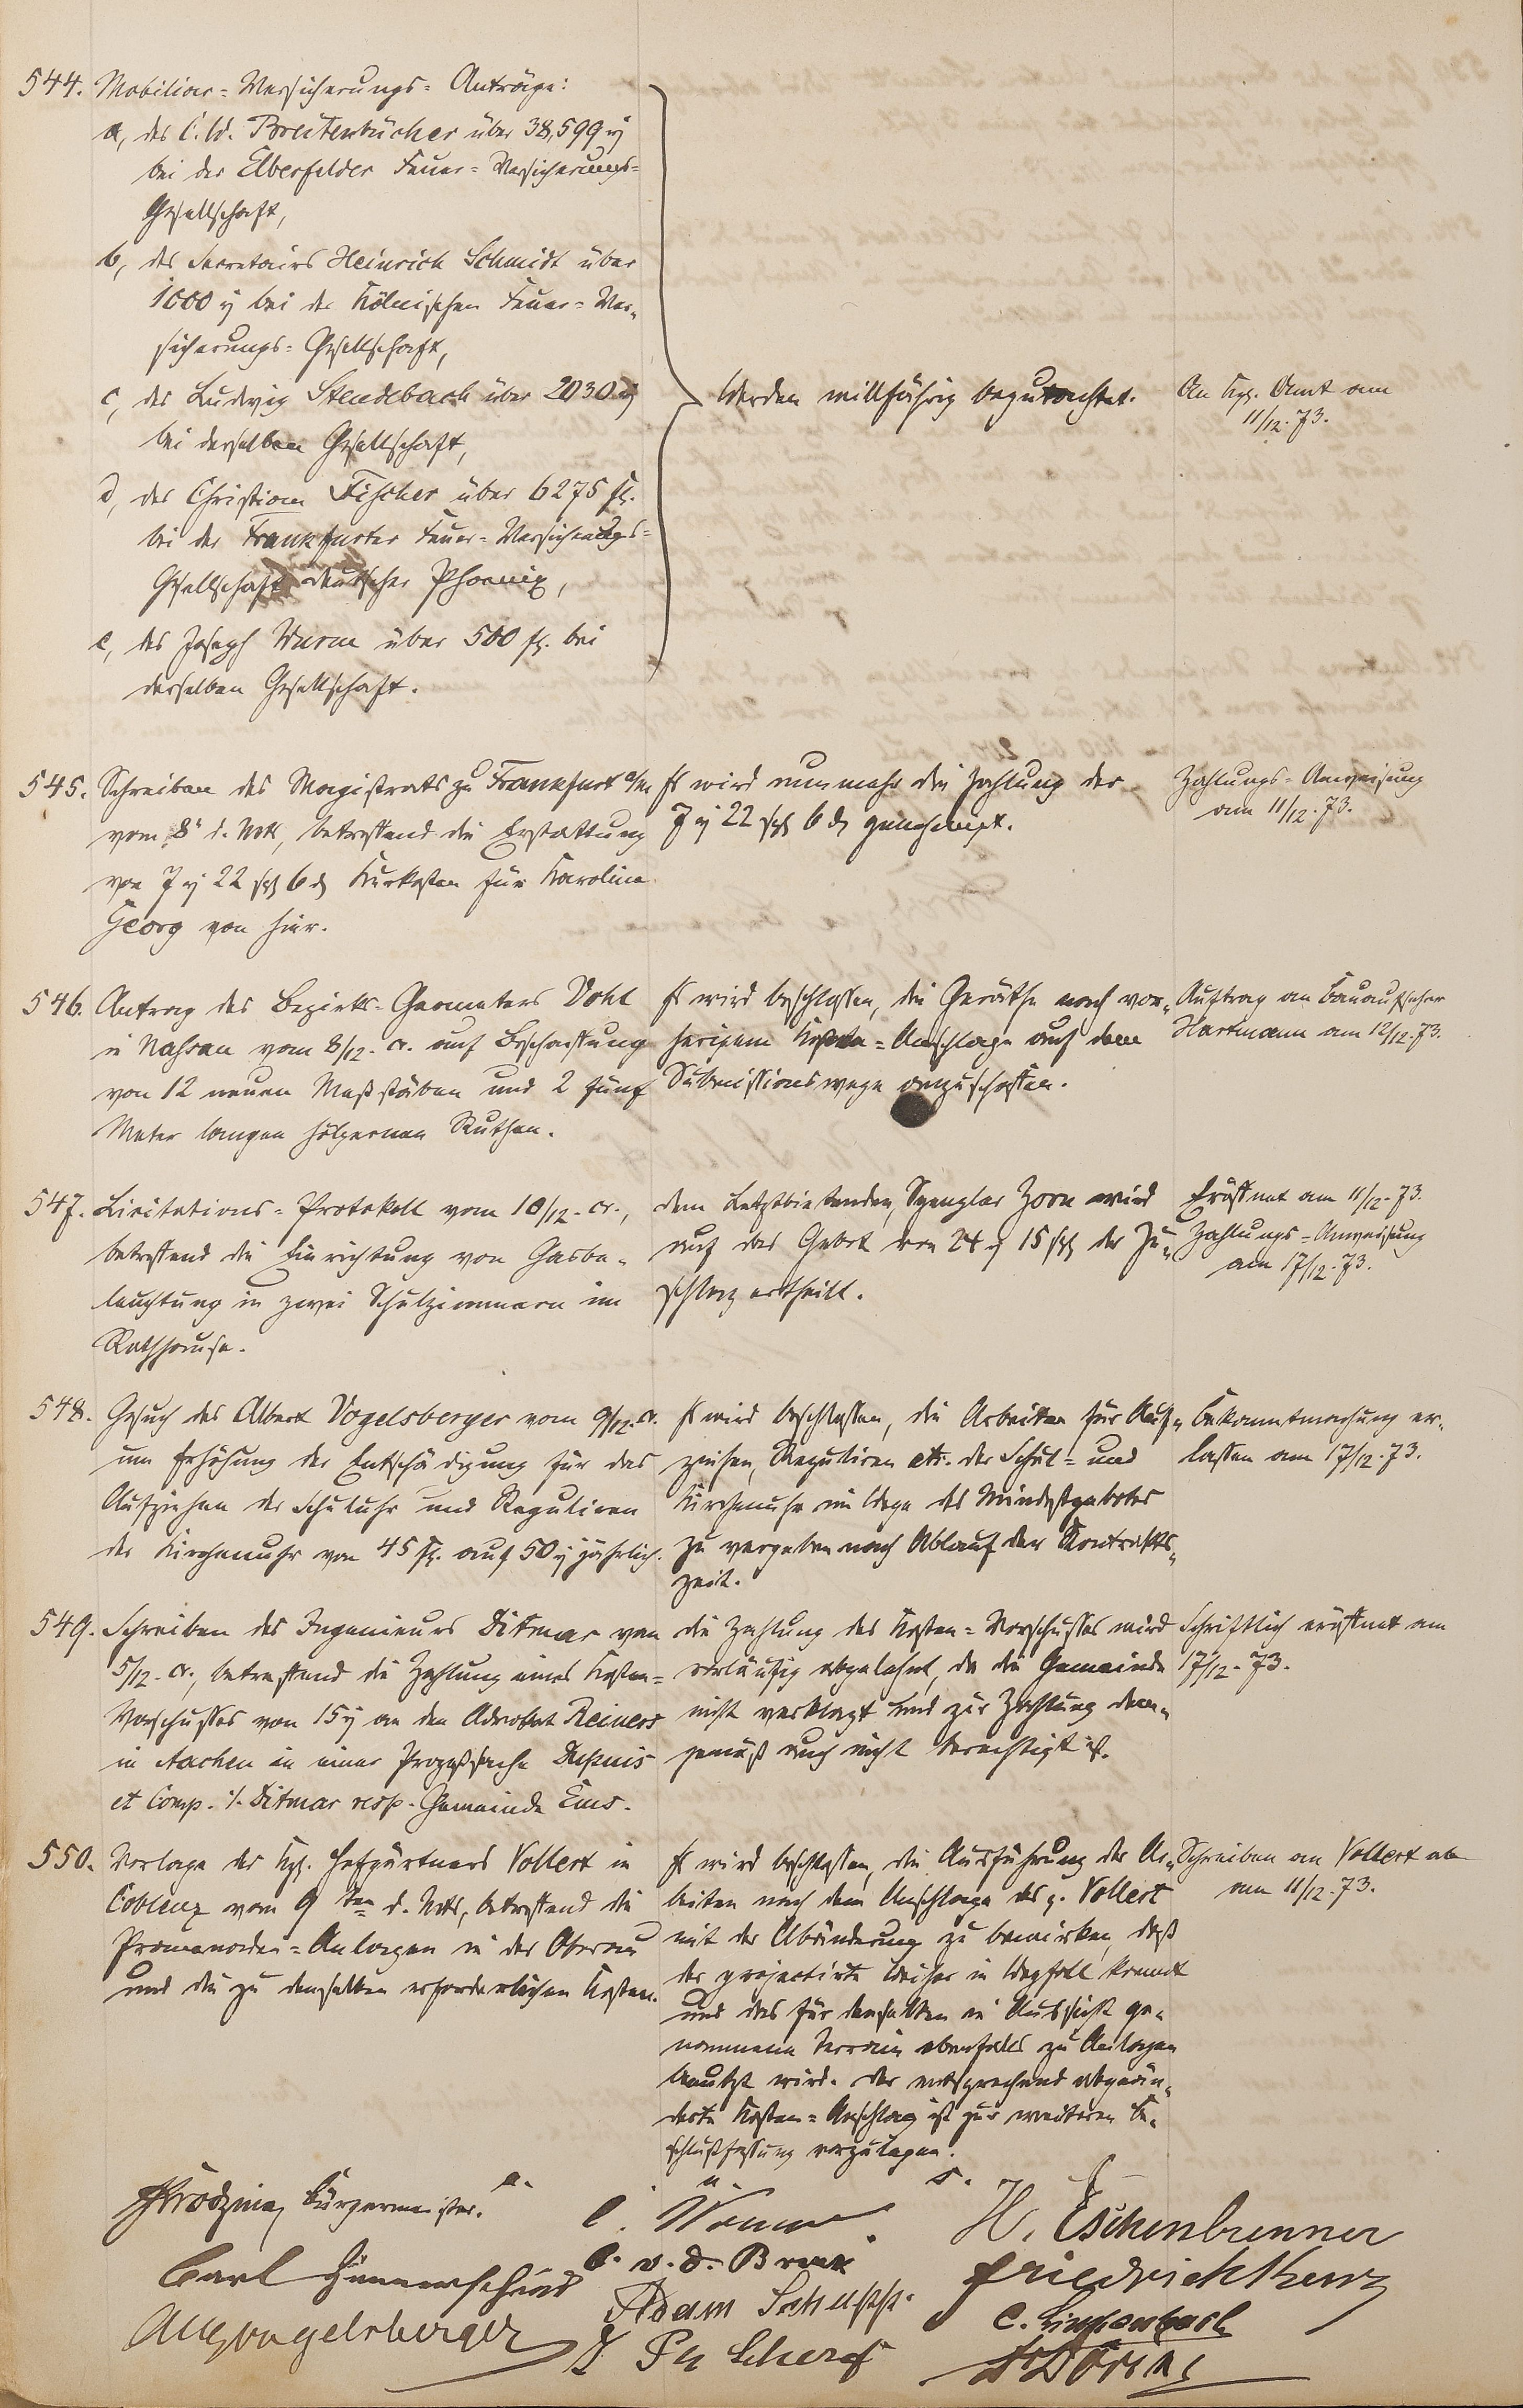 544. Mobiliar=Versicherungs=Anträge:
a, des C. W. Breitenbücher über 38,599 rf
bei der Elberfelder Feuer=Versicherungs=
Gesellschaft,
b, des Secretairs Heinrich Schmidt über
1000 rf bei der Kölnischen Feuer=Ver-
sicherungs=Gesellschaft,
c, des Ludwig Stendebach über 2030 rf
bei derselben Gesellschaft,
d, des Christian Fischer über 6275 fl.
bei der Frankfurter Feuer=Versicherungs=
Gesellschaft deutscher Phoenix,
e, des Joseph Wurm über 500 fl. bei
derselben Gesellschaft.
Werden willfährig begutachtet.
An Kgl. Amt am
11/12. 73.
545. Schreiben des Magistrats zu Frankfurt a/M
vom 8t d. Mts, betreffend die Erstattung
von 7 rf 22 sgl 6 d Kurkosten für Karoline
Georg von hier.
Es wird nunmehr die Zahlung der
7 rf 22 sgl 6 d genehmigt.
Zahlungs=Anweisung
am 11/12. 73.
546. Antrag des Bezirks=Geometers Vohl
in Nassau vom 8/12. cr. auf Beschaffung
von 12 neuen Maßstäben und 2 fünf
Meter langen hölzernen Ruthen.
Es wird beschlossen, die Geräthe nach vor-
herigem Kosten=Anschlage auf dem
Submissionswege anzuschaffen.
Auftrag an Bauaufseher
Hartmann am 12/12. 73.
547. Licitations=Protokoll vom 10/12. cr.,
betreffend die Einrichtung von Gasbe-
leuchtung in zwei Schulzimmern im
Rathhause.
Dem Letztbietenden, Spengler Zorn wird
auf das Gebot von 24 rf 15 sgl der Zu-
schlag ertheilt.
Eröffnet am 11/12. 73.
Zahlungs=Anweisung
am 17/12. 73.
548. Gesuch des Albert Vogelsberger vom 9/12. cr.
um Erhöhung der Entschädigung für das
Aufziehen der Schuluhr und Reguliren
der Kirchenuhr von 45 fl. auf 50 rf jährlich.
Es wird beschlossen, die Arbeiten für Auf-
ziehen, Reguliren etc. der Schul= und
Kirchenuhr im Wege des Mindestgebotes
zu vergeben nach Ablauf der Kontrakts-
zeit.
Bekanntmachung er-
lassen am 17/12. 73.
549. Schreiben des Ingenieurs Ditmar vom
5/12. cr., betreffend die Zahlung eines Kosten=
Vorschusses von 15 rf an den Advokat Reiners
in Aachen in einer Prozeßsache Dupuis
et Comp. ./. Ditmar resp. Gemeinde Ems.
Die Zahlung des Kosten=Vorschusses wird
vorläufig abgelehnt, da die Gemeinde
nicht verklagt und zur Zahlung dem-
gemäß auch nicht berechtigt ist.
Schriftlich eröffnet am
17/12. 73.
550. Vorlage des Kgl. Hofgärtners Vollert in
Coblenz vom 9 ten d. Mts, betreffend die
Promenaden=Anlagen in der Oberau
und die zu denselben erforderlichen Kosten.
Es wird beschlossen, die Ausführung der Ar-
beiten nach dem Anschlage des p. Vollert
mit der Abänderung zu bewirken, daß
der projectirte Weiher in Wegfall kommt
und das für denselben in Aussicht ge-
nommene Terrain ebenfalls zu Anlagen
benutzt wird. Der entsprechend abgeän-
derte Kosten=Anschlag ist zur weiteren Be-
schlußfassung vorzulegen.
Schreiben an Vollert ab
am 11/12. 73.
Bürgermeister.
Carl
Vogelsberger
C.
C. v. d. Bruck
Adam Schupp.
Ph Scherf
H. Eschenbrenner
Friedrich Kurz
C. Linkenbach
Döring